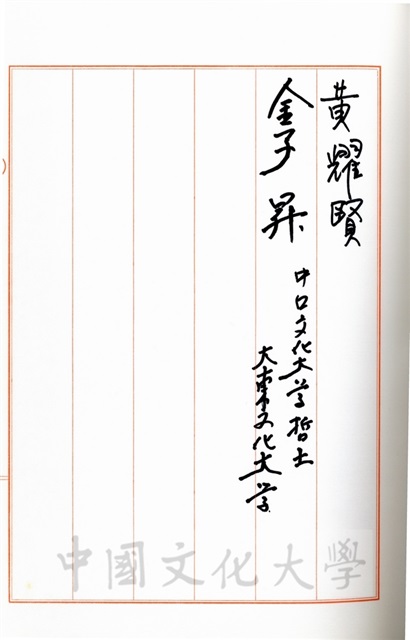 黄耀賢
金子昇
中口文化大学哲士
大東文化大学
中國文化大學